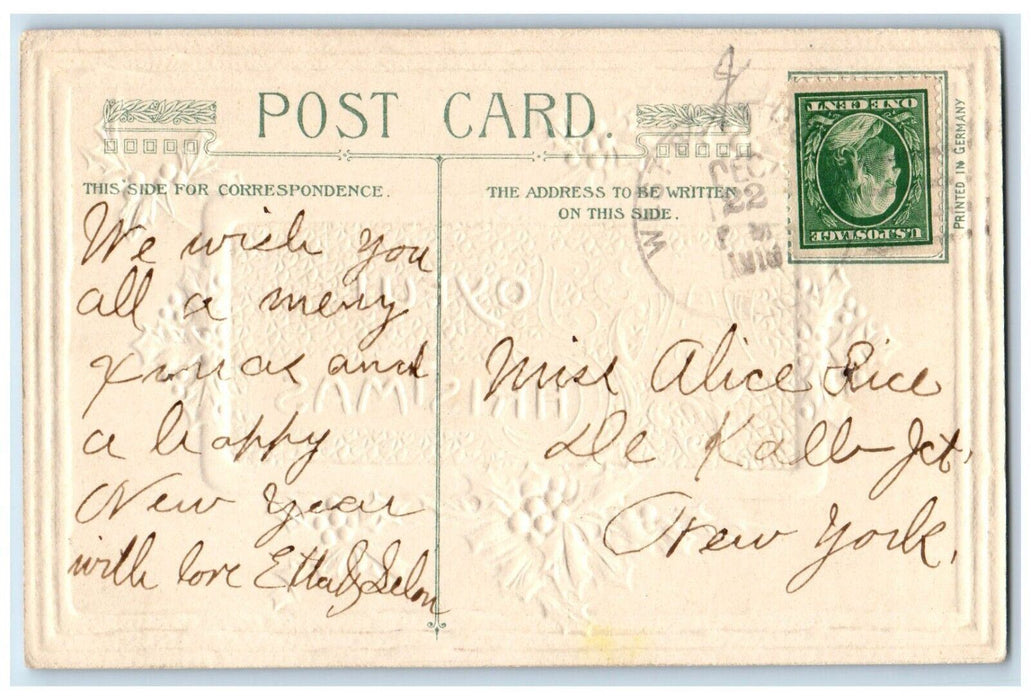 POST CARD.
THIS SIDE FOR CORRESPONDENCE.
THE ADDRESS TO BE WRITTEN
ON THIS SIDE.
PRINTED IN GERMANY
ONE CENT.
U.S. POSTAGE
DEC
22
We wish you
all a merry
xmas and
a happy
New Year
with love Etta &
Miss Alice Rice
De Kalb Jct.
New York.